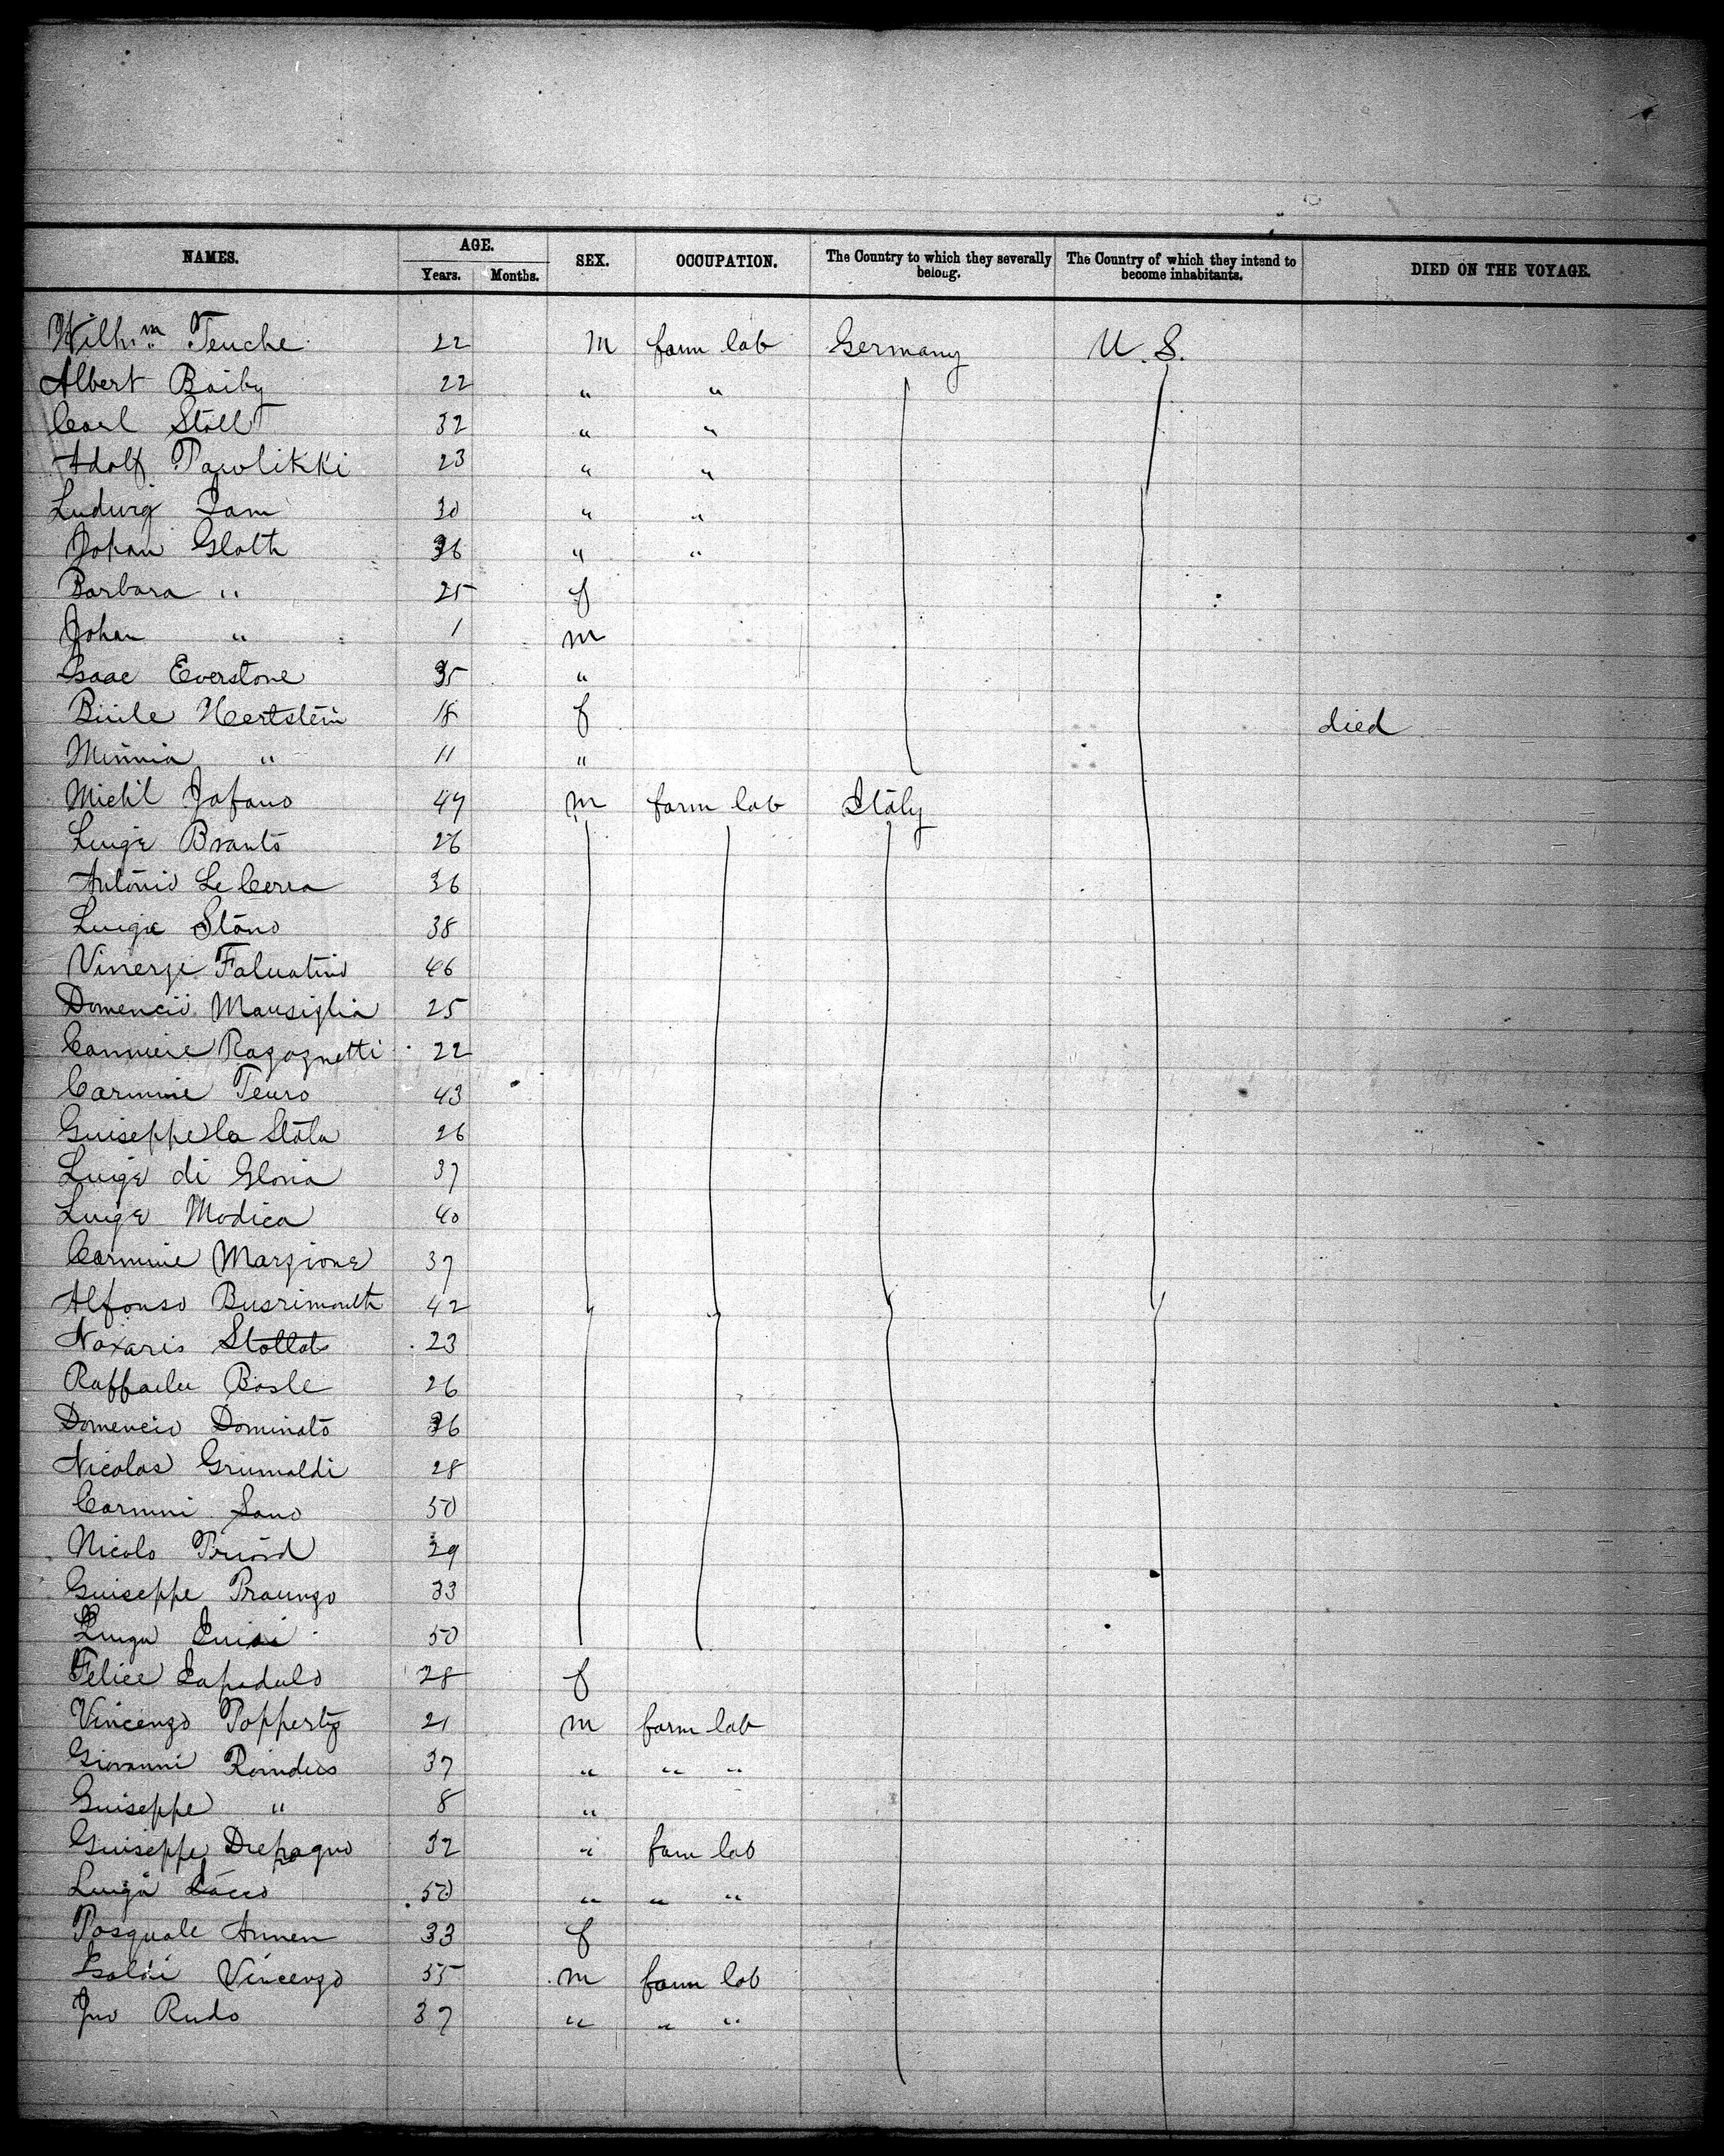 NAMES. AGE. SEX. OCCUPATION. The Country to which they severally belong. The Country of which they intend to become inhabitants. DIED ON THE VOYAGE.
Years. Months.
Wilhm Teuche 22 m farm lab Germany U.S.
Albert Baiby 22 " "
Carl Stoll 32 " "
Adolf Pawlikki 23 " "
Ludwig Sam 30 " "
Johan Gloth 36 " "
Barbara " 25 f
Johan " 1 m
Isaac Everstone 35 "
Hertstein 18 f died
Minnia " 11 "
Michl Jafano 47 m farm lab Italy
Luige Branto 26
Antonio Le Cerra 36
Luigie Stano 38
Faluatino 46
Domencio Mausiglia 25
Ragognetti 22
Carmine Teuro 43
Guiseppe la Stata 26
Luige di Gloria 37
Luige Modica 40
Carmine Margione 37
Alfonso Busrimonth 42
Naxaris Stollat 23
Raffaelee Basle 26
Domencio Dominato 36
Nicolas Grumaldi 28
Carmini Sano 50
Nicolo 39
Guiseppe Praungo 33
50
Felice Capadulo 28 f
Vincenzo Popperty 21 m farm lab
Giovanni Roindus 37 " " "
Guiseppe " 8 "
Guiseppe Drepagno 32 " farm lab
Luiga Sacco 50 " " "
Pasquale Annen 33 f
Isoldi Vincenzo 35 m farm lab
Jno Rudo 37 " " "